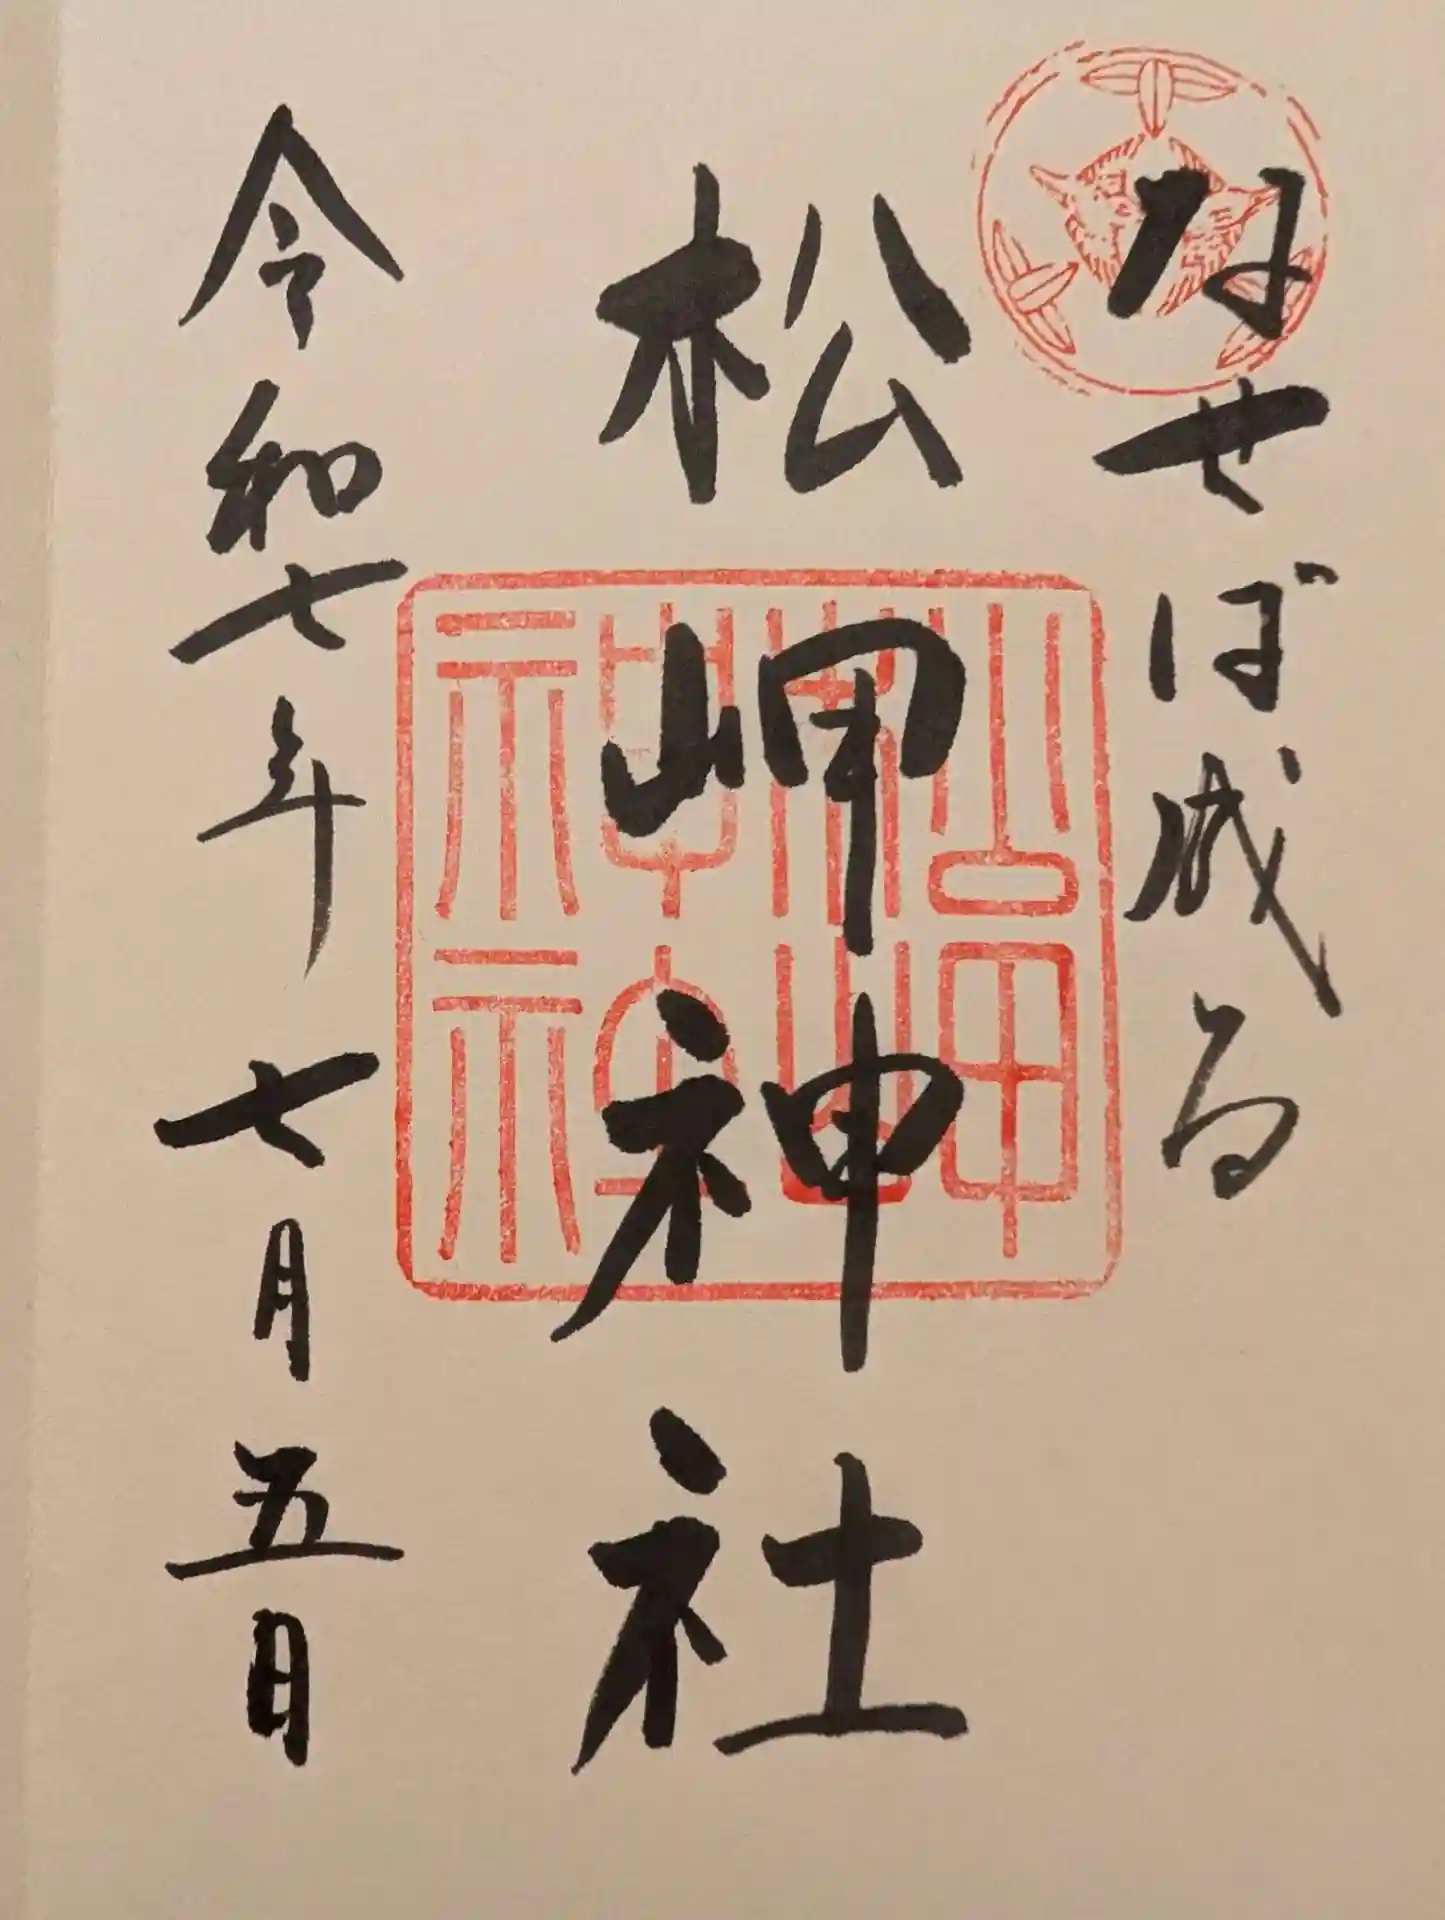 なせば成る
松岬神社
令和七年七月五日